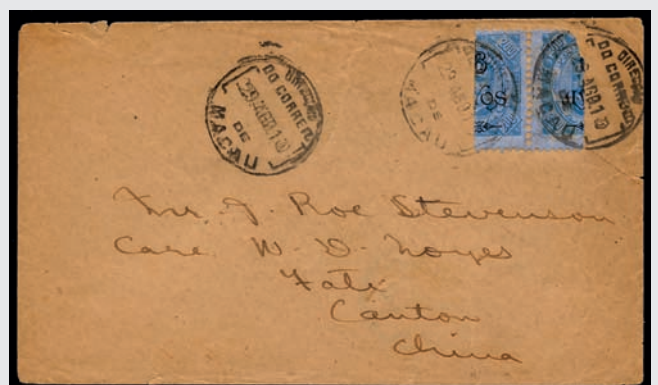 DIRECÇÃO DO CORREIO
29 AGO.10
DE
MACAU
29 AGO.
DE
MACAU
DIRECÇÃO DO CORREIO
AGO.10
MACAU
Mr. J. Roe Stevenson
Care W. D. Noyes
Fati
Canton
China